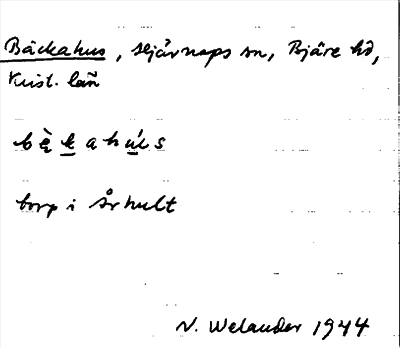 Bäckahus, Hjärnaps sn, Bjäre hd,
Krist. län
bè̜kahu̠ś
torp i Århult
N. Welander 1944